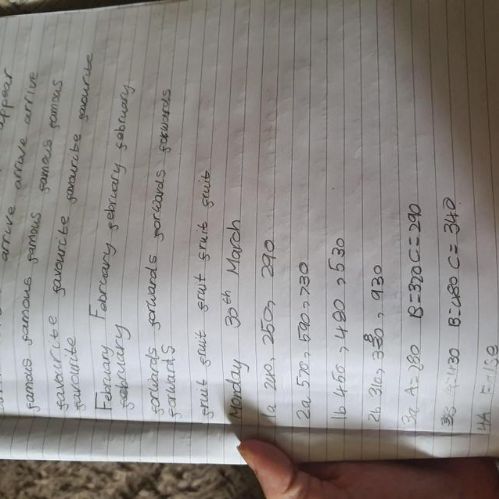 appear
arrive arrive arrive
famous famous famous famous famous
favourite favourite favourite favourite
favourite
February February february february
february
forwards forwards forwards forwards forwards
forwards
fruit fruit fruit fruit fruit
Monday 30th March
1a 240, 250, 290
2a 570, 590, 730
1b 450, 480, 530
2b 310, 930
3a A=280 B=320 C=290
B=480 C=340
4A